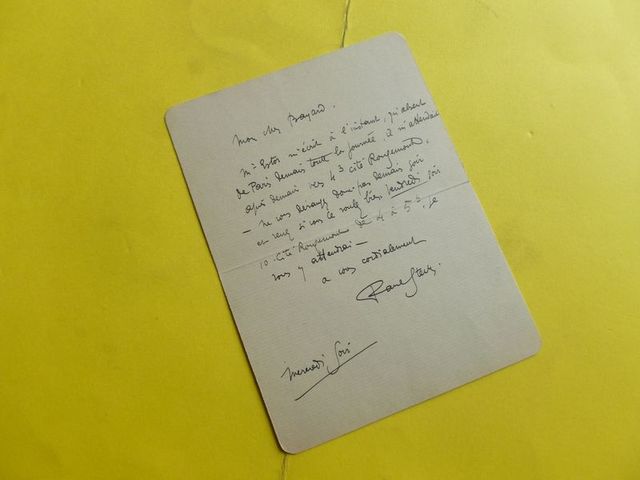 Mon cher Bayard.
Mr Estor m'écrit à l'instant, qu'absent
de Paris demain toute la journée, il m'attendra
après demain vers 4 3 cité Rougemont.
— ne vous dérangez donc pas demain soir
et venez si vous le voulez bien, vendredi soir
10. Cité Rougemont de 4 à 5 h. je
vous y attendrai —
a vous cordialement
Raoul
mercredi soir